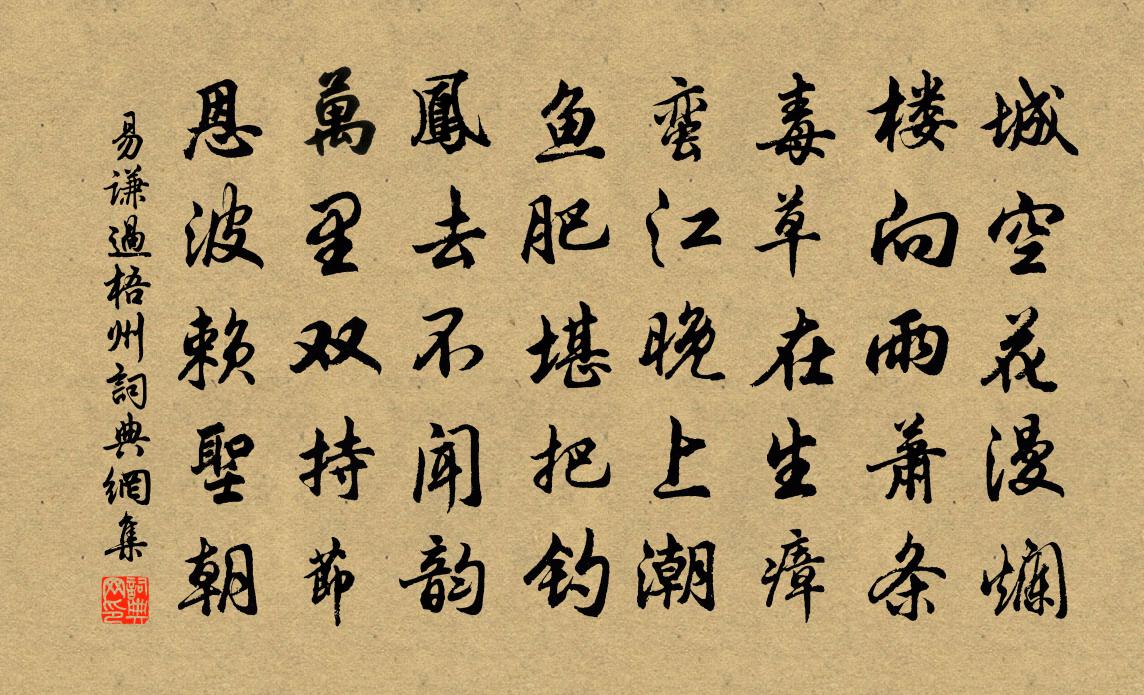 城空花漫烂
楼向雨萧条
毒草在生瘴
蛮江晚上潮
鱼肥堪把钓
鳳去不闻韵
萬里双持節
恩波赖聖朝
易谦過梧州詞典網集
詞典网印